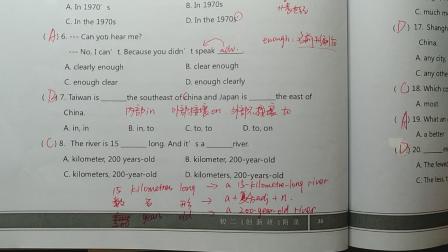 A. In 1970's B. In 1970s
C. In the 1970s D. In the 1970's
(A) 6. --- Can you hear me? enough:
--- No. I can't. Because you didn't speak adv.
A. clearly enough B. clear enough
C. enough clear D. enough clearly
(D) 7. Taiwan is ___ the southeast of China and Japan is ___ the east of
China. 内部 in 外部接壤 on 外部不接壤 to
A. in, in B. in, to C. to, to D. to, on
(C) 8. The river is 15 ___ long. And it's a ___ river.
A. kilometer, 200 years-old B. kilometer, 200-year-old
C. kilometers, 200-year-old D. kilometers, 200-years-old
15 kilometres long → a 15-kilometre-long river
数 名 形 → a + adj + n.
years old → a 200-year-old river
初二(创新班)阶课 36
C. much m
(D) 17. Shangh
A. any city,
C. any city
(C) 18. Which co
A. most
(A) 19. What an
A. with
(D) 20.
A. The fewe
C. The less, t